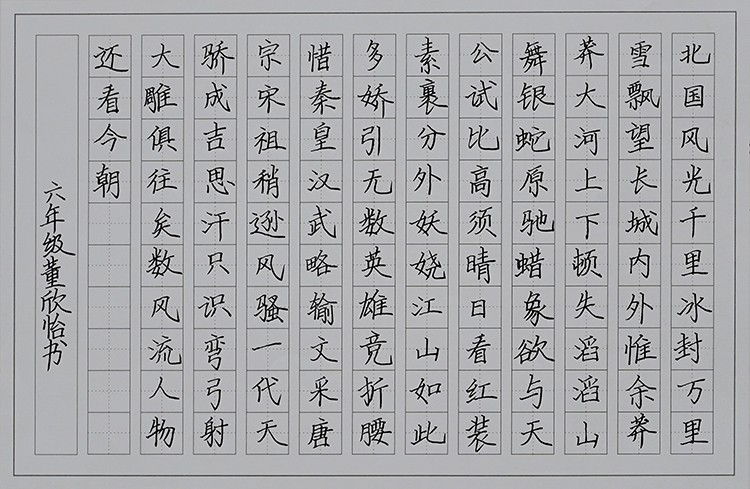 北国风光千里冰封万里
雪飘望长城内外惟余莽
莽大河上下顿失滔滔山
舞银蛇原驰蜡象欲与天
公试比高须晴日看红装
素裹分外妖娆江山如此
多娇引无数英雄竞折腰
惜秦皇汉武略输文采唐
宗宋祖稍逊风骚一代天
骄成吉思汗只识弯弓射
大雕俱往矣数风流人物
还看今朝
六年级董欣怡书